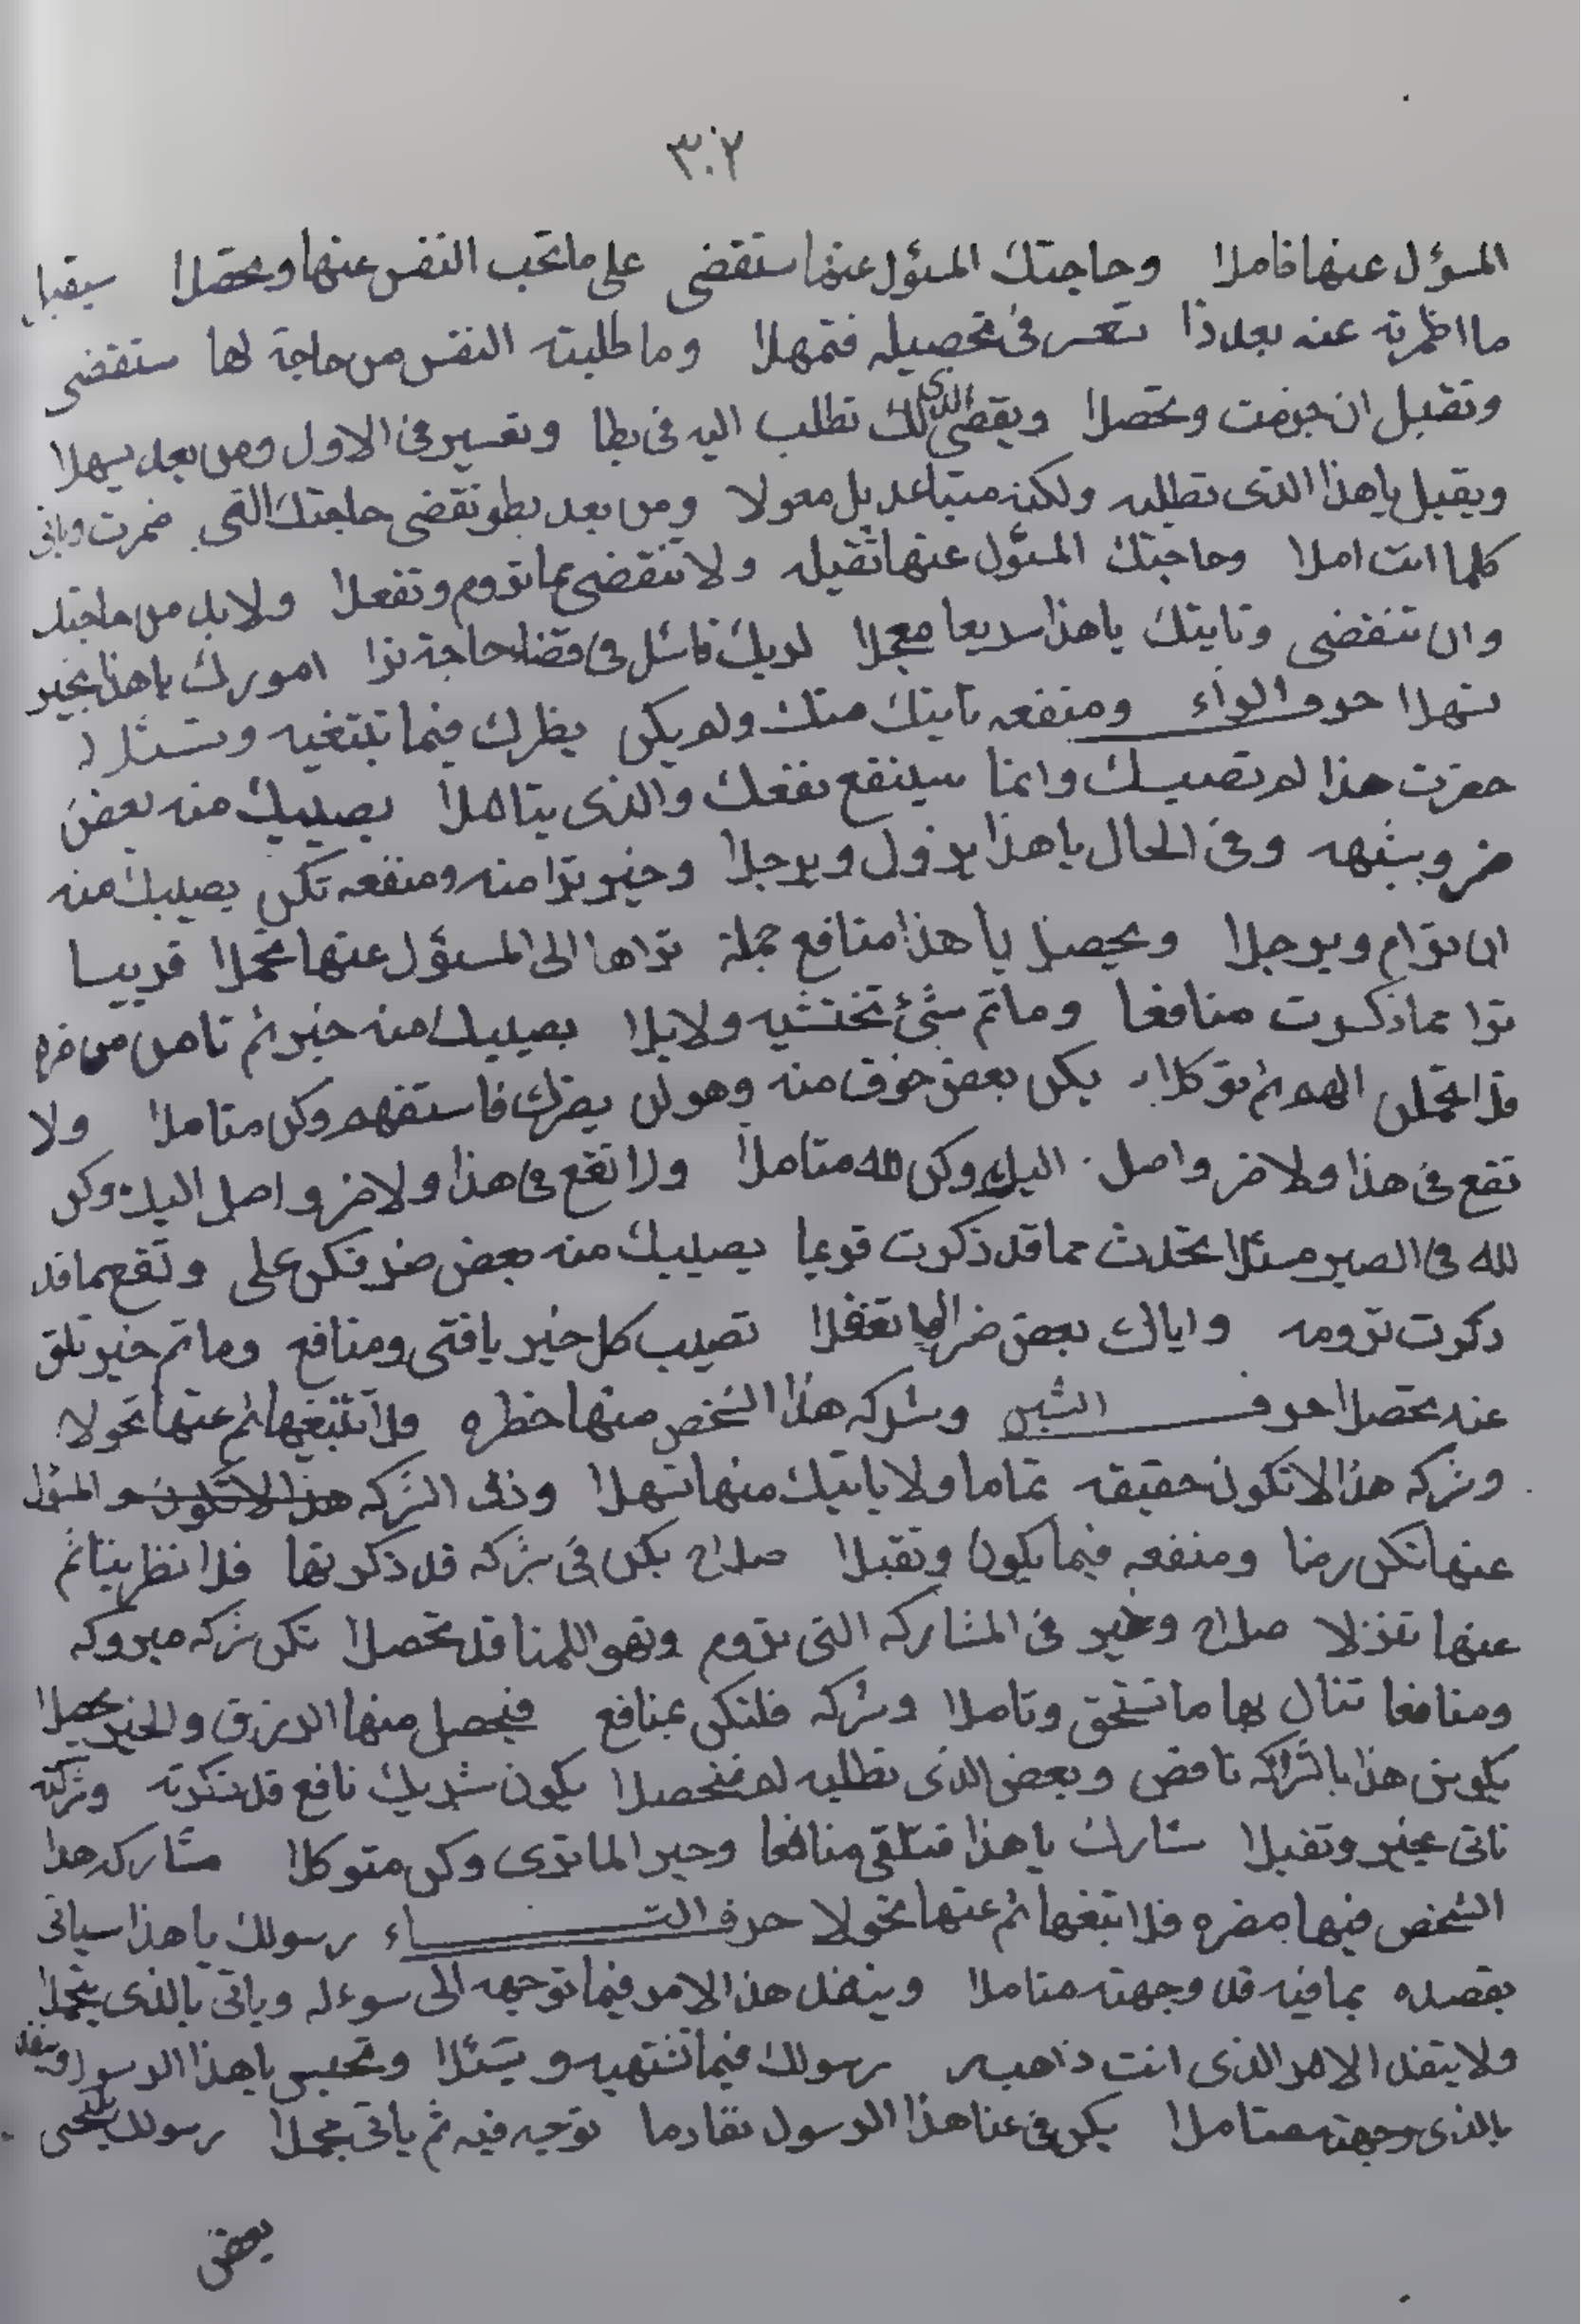 ٣٠٢
المسؤل عنها فاملا وحاجتك المسؤل عنها ستقضى على ما تحب النفس عنها وتحصلا سيقبل
ما اظمرته عنه بعد ذا تعسر فى تحصيله فتمهلا وما طلبته النفس من حاجة لها ستقضى
وتقبل ان جزمت وتحصلا ويقضى لك الذى تطلب اليه فى بطا وتعسير فى الاول ومن بعد يسهلا
ويقبل ياهذا الذى تطلبه ولكنه متباعد بل معولا ومن بعد بطو تقضى حاجتك التى ضمرت وياتى
كلما انت املا وحاجتك المسؤل عنها ثقيله ولا تنقضى عما تروم وتفعلا ولا بد من حاجتك
وان تنقضى وتايتك ياهذا سريعا معجلا لديك فاسئل فى قضاء حاجة ترا امورك ياهذا بخير
تسهلا حرف الراء ومنفعه تايتك منك ولم يكن يظرك فيما تبتغيه وتسئلا
حضرت هذا لم تصيبك وانما سينفع نفعك والذى يتاهلا يصيبك منه بعض
ضر وبشبهه وفى الحال ياهذا يزول ويرجلا وخير ترا منه ومنفعه تكن يصيبك منه
ان ترام ويرجلا ويحصل ياهذا منافع جملة تراها الى المسؤل عنها تجملا قريبا
ترا مما ذكرت منافعا وماثم شئ تختشيه ولا بلا يصيبك منه خير ثم تامن من ضره
فلا تحملن الهم ثم توكلا يكن بعض خوف منه وهو لن يضرك فاستفهم وكن متاملا ولا
تقع فى هذا ولا ضر واصل اليك وكن لله متاملا ولا تقع فى هذا ولا ضر واصل اليك وكن
لله فى الصبر مسئلا تحدث مما قد ذكرت قوعا يصيبك منه بعض ضر فكن على وتقع مما قد
ذكرت ترومه واياك بعض ضر الها تغفلا تصيب كل خير يافتى ومنافع وماتم خير تلق
عند تحصلا حرف الشين وشركه هذا الشخص منها خطره فلا تتبغيها ثم عنها تحولا
وشركه هذا لا تكون حقيقه تماما ولا ياتيك منها تسهلا وذى الشركه هذا لا تكون المسؤل
عنها تكن رضا ومنفعه فيما يكون وتقبلا صلاح يكن فى شركه قد ذكرتها فلا تظر بنا ثم
عنها تنزلا صلاح وخير فى المشاركه التى تروم وتهو اللمنا قد تحصلا تكن شركه مبروكه
ومنافعا تنال بها ما تستحق وتاملا وشركه فلتكن بمنافع فيحصل منها الرزق والخير يحصلا
يكون هذا بالشراكه ناقص وبعض الذى تطلبه لم يتحصلا يكون شريك نافع قد ذكرته وشركته
تاتى بخير وتقبلا شارك ياهذا فتلقى منافعا وخير الما ترى وكن متوكلا مشاركه هذا
الشخص فيها مضره فلا تبتغها ثم عنها تحولا حرف التاء رسولك ياهذا سياتى
بقصده بما فيه قد وجهته متاملا وينفذ هذا الامر فيما توجهه الى سوءله وياتى بالذى يتجملا
ولا ينفذ الامر الذى انت ذاهب رسولك فيما تشتهيه ويسئلا وتحبس ياهذا الرسول
بالذى وجهته متاملا يكن فى عنا هذا الرسول تقادما توجيه فيه ثم ياتى مجملا رسولك
بعض